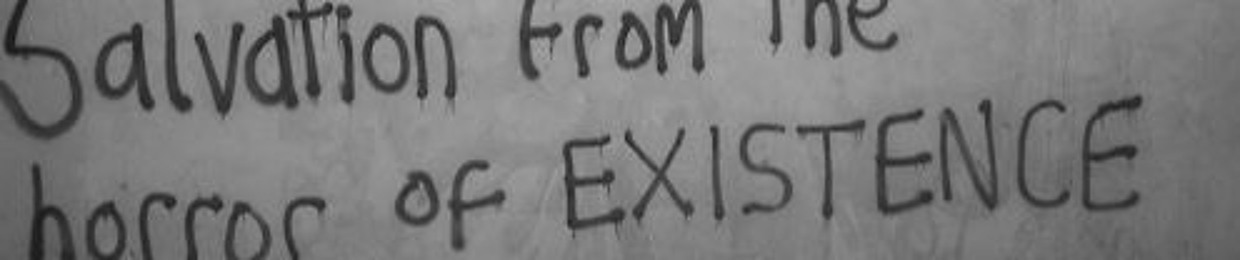 Salvation from The
horror of EXISTENCE